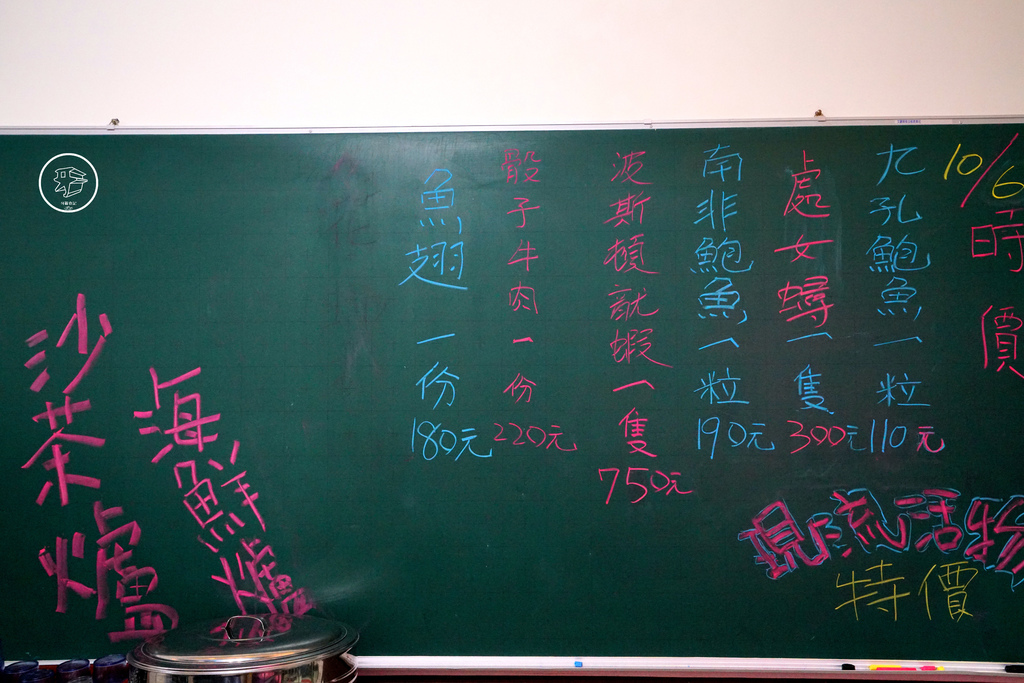 10/6
時價
九孔鮑魚一粒110元
處女蟳一隻300元
南非鮑魚一粒190元
波斯頓龍蝦一隻750元
骰子牛肉一份220元
魚翅一份180元
現流活物
特價
海鮮爐
沙茶爐